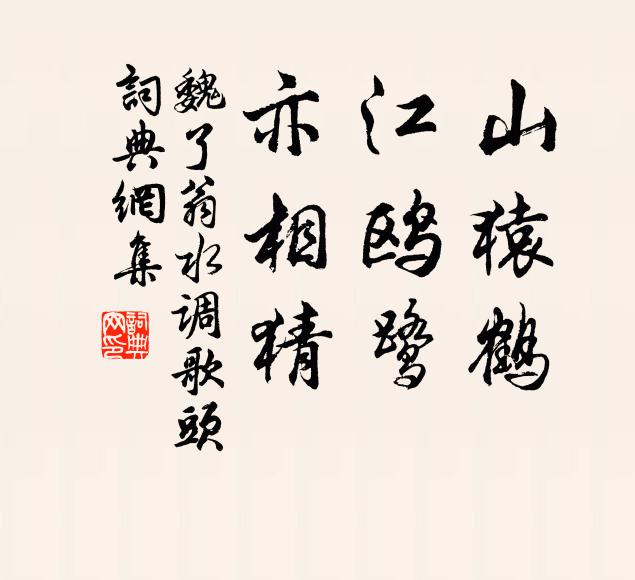 山猿鹤
江鸥鹭
亦相猜
魏了翁水调歌頭
詞典網集
詞典网印